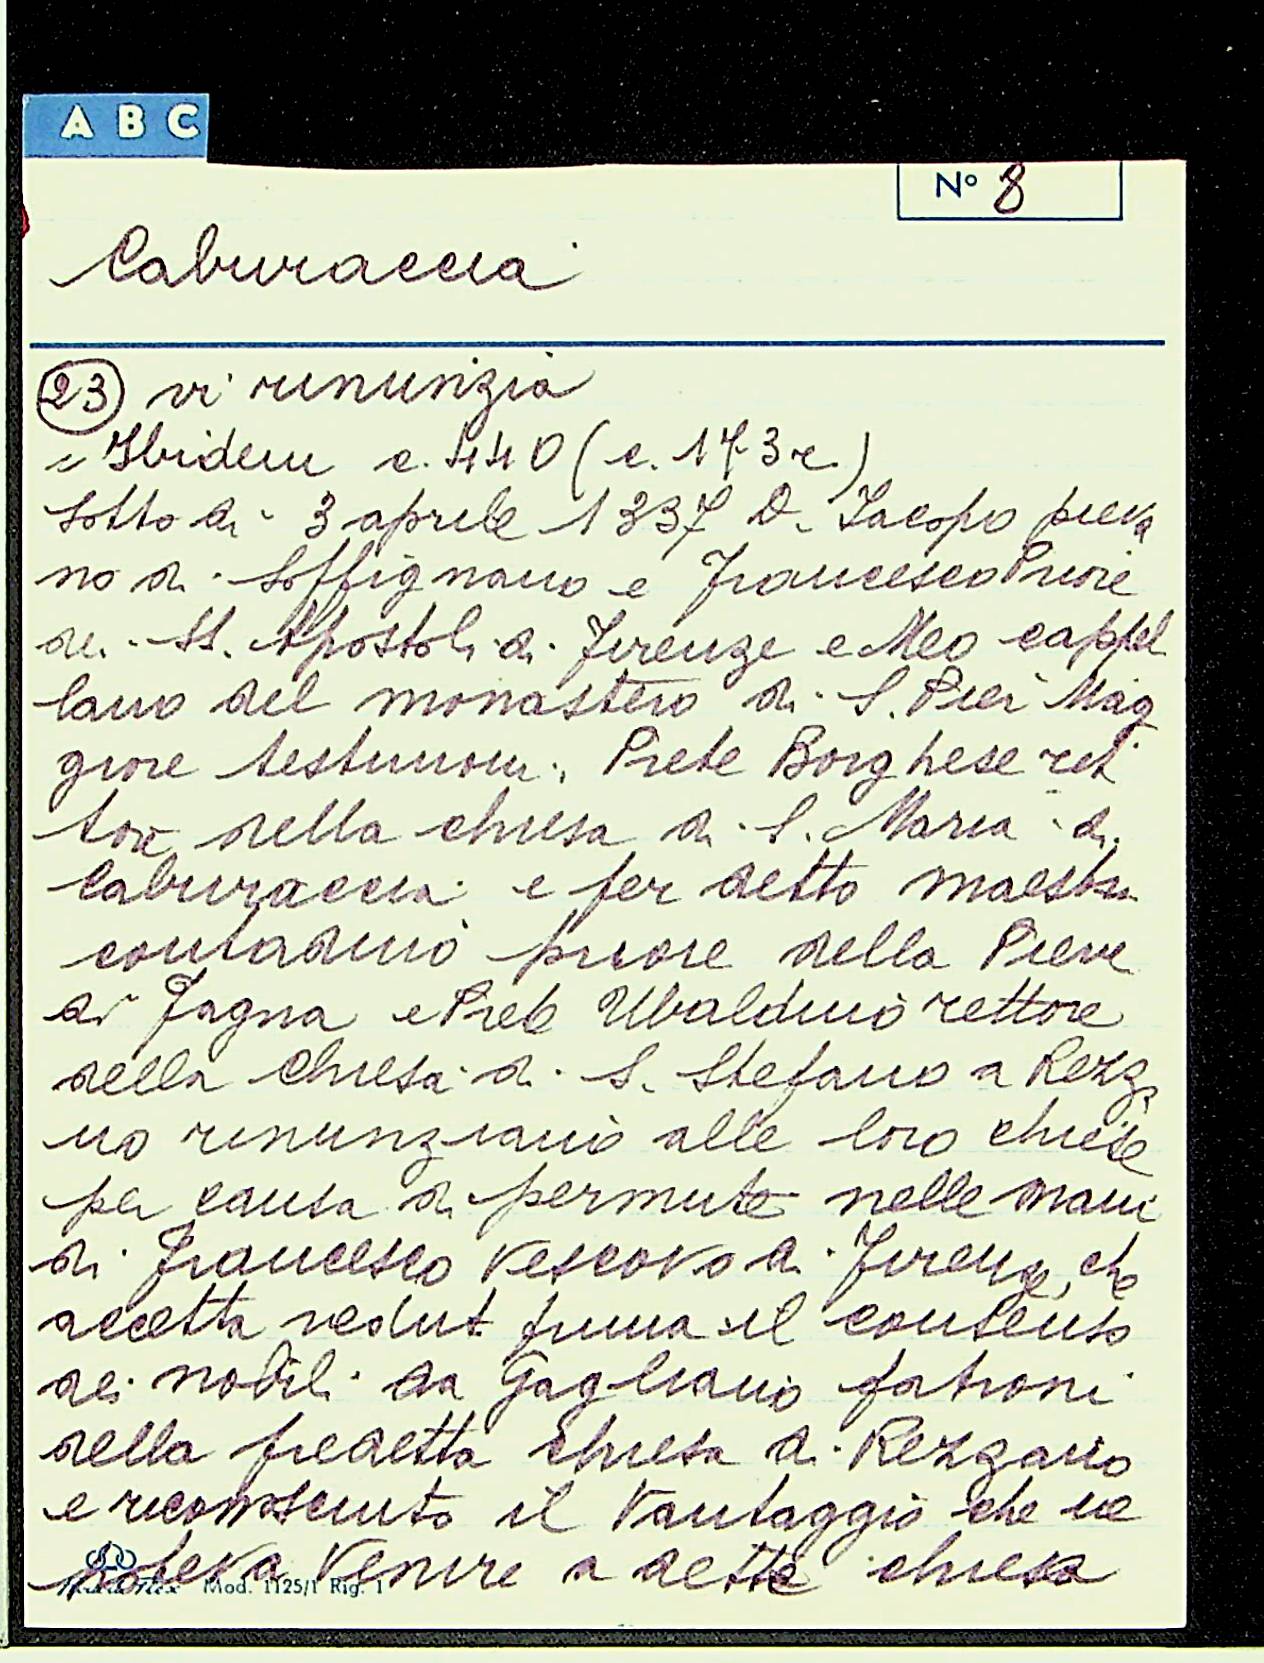 A B C
N° 8
Caburaccia
23 vi rinunzia
" Ibidem c. 440 (c. 173 r.)
Sotto di 3 aprile 1337 D. Iacopo pieva
no di Soffignano e Francesco Priore
dei SS. Apostoli di Firenze e Meo cappel
lano del monastero di S. Pier Mag
giore testimoni, Prete Borghese ret
tore della chiesa di S. Maria di
Caburaccia e ser detto maestro
contadino priore della Pieve
di Fagna e Prete Ubaldino rettore
della chiesa di S. Stefano a Rezza
no rinunziano alle loro chiese
per causa di permuta nelle mani
di Francesco Vescovo di Firenze, che
accetta veduto prima il consenso
dei nobili da Gagliano patroni
della predetta chiesa di Rezzano
e riconosciuto il vantaggio che ne
poteva venire a dette chiesa
Mod. 1125/1 Rig. 1